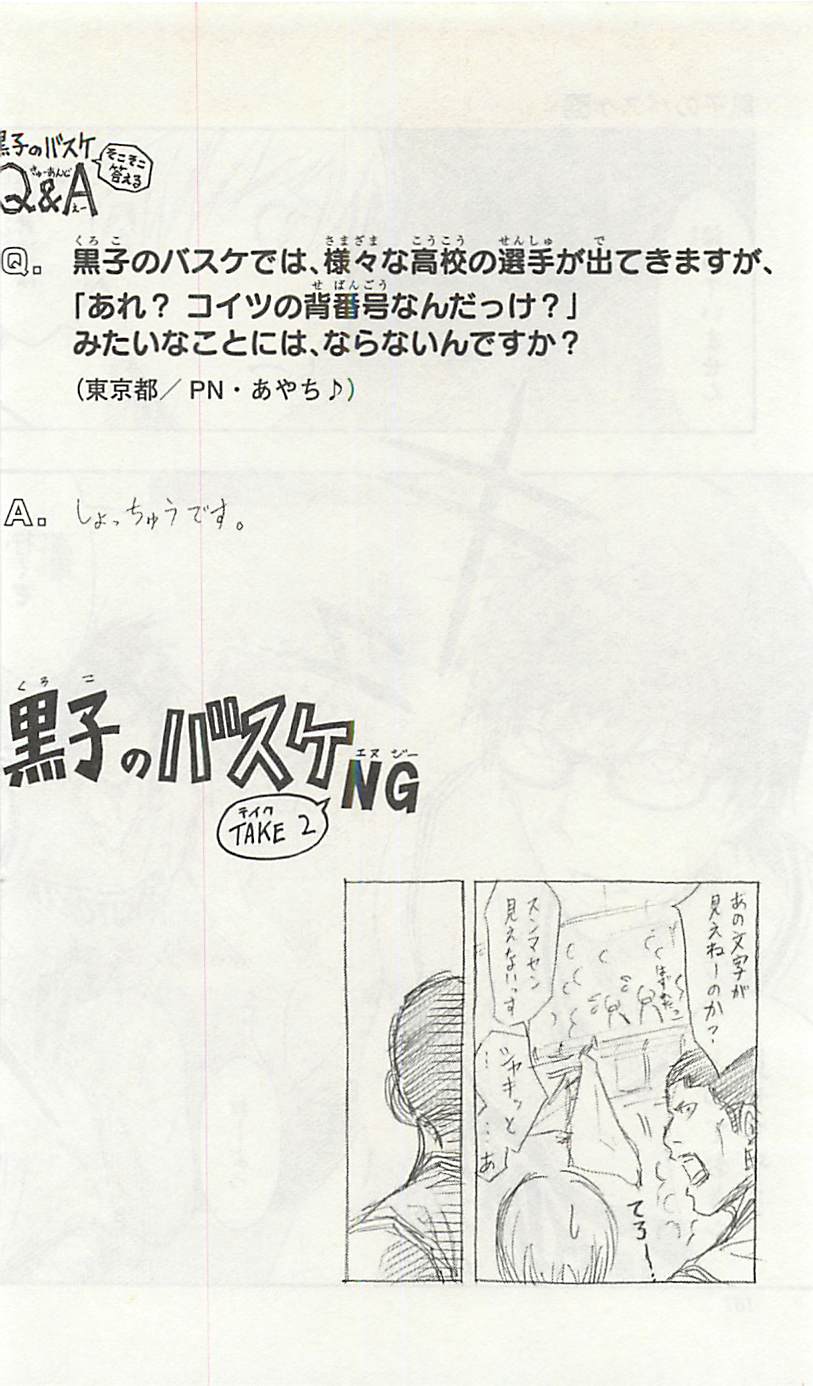 黒子のバスケ
そこそこ
答える
Q&A
Q. 黒子のバスケでは、様々な高校の選手が出てきますが、
「あれ? コイツの背番号なんだっけ?」
みたいなことには、ならないんですか?
(東京都/PN・あやち♪)
A. しょっちゅうです。
黒子のバスケNG
TAKE 2
あの文字が
見えねーのか?
スンマセン
見えないっす
シャキっと
……あ
てろーー